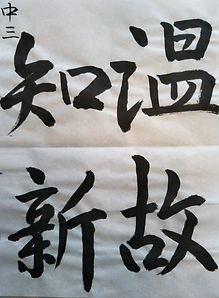 温故
知新
中三